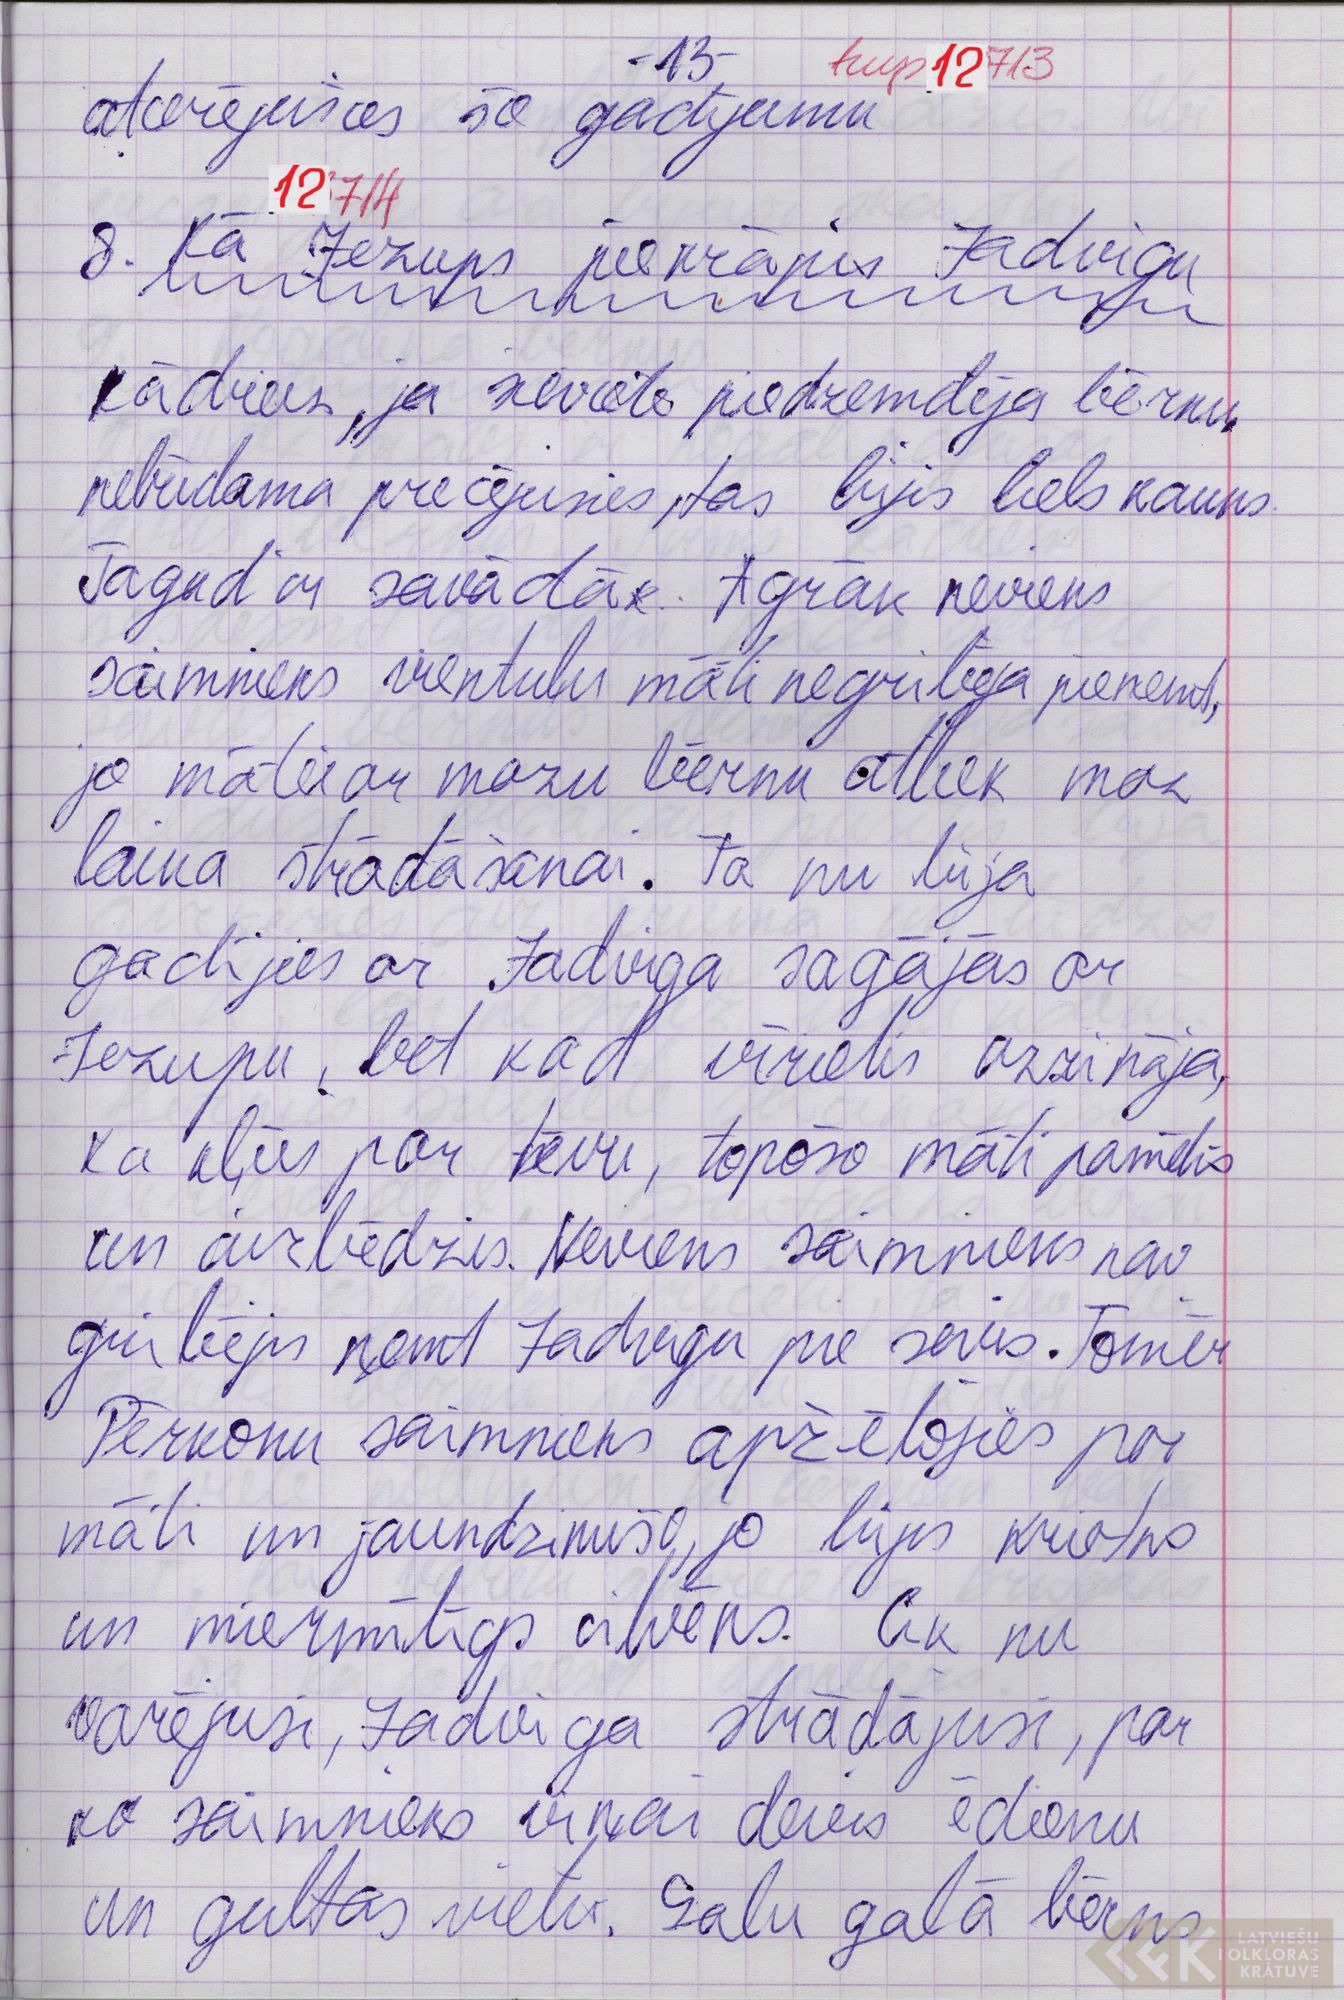 -13-
turp 12713
atcerējusies šo gadījumu
12714
8. Kā Jezups piekrāpis Jadvigu
Kādreiz, ja sieviete piedzemdēja bērnu,
nebūdama precējusies, tas bijis liels kauns.
Tagad ir savādāk. Agrāk neviens
saimnieks vientuļu māti negribēja pieņemt,
jo mātei ar mazu bērnu atliek maz
laika strādāšanai. Tā nu bija
gadījies ar Jadviga sagājās ar
Jezupu, bet kad vīrietis uzzināja,
ka kļūs par tēvu, topošo māti pametis
un aizbēdzis. Neviens saimnieks nav
gribējis ņemt Jadvigu pie sevis. Tomēr
Pērkonu saimnieks apžēlojies par
māti un jaundzimušo, jo bijis krietns
un miermīlīgs cilvēks. Cik nu
varējusi, Jadviga strādājusi, par
ko saimnieks viņai devis ēdienu
un gultas vietu. Galu galā bērns
LATVIEŠU
FOLKLORAS
KRĀTUVE